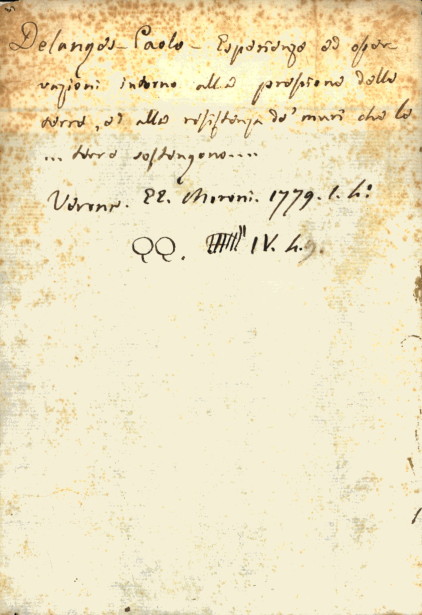 Delanges - Paolo - Esperienze ed osser-
vazioni intorno alla pressione delle
terre, ed alla resistenza de' muri che le
... terre sostengono....
Verona. EE. Moroni. 1779. 1. 4.º
QQ. IV. 4.